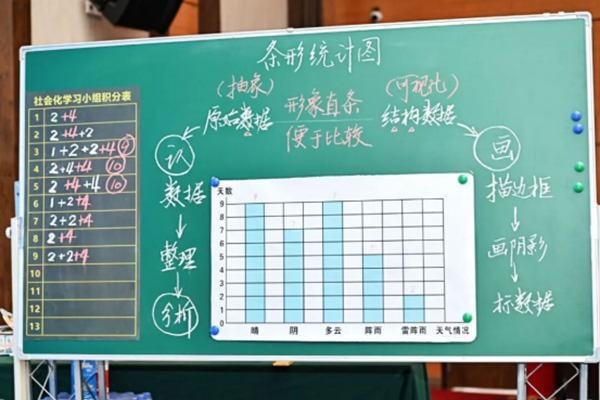 条形统计图
(抽象)
(可视化)
原始数据
形象直条
结构数据
便于比较
认
数据
整理
分析
画
描边框
画阴影
标数据
社会化学习小组积分表
1 2+4
2 2+4+2
3 1+2+2+4 9
4 2+4+4 10
5 2+4+4 10
6 1+2+4
7 2+2+4
8 2+4
9 2+2+4
10
11
12
13
天数
9
8
7
6
5
4
3
2
1
0
晴 阴 多云 阵雨 雷阵雨 天气情况